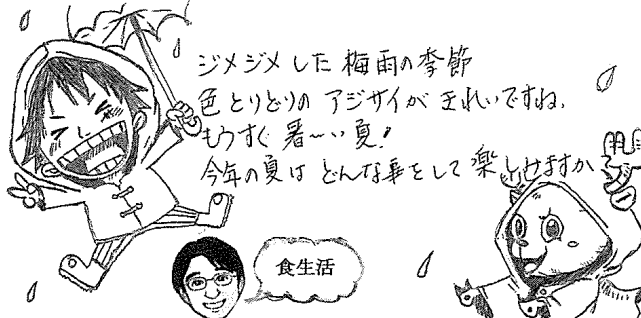 ジメジメした梅雨の季節
色とりどりのアジサイがきれいですね、
もうすぐ暑〜い夏！
今年の夏はどんな事をして楽しみますか
食生活